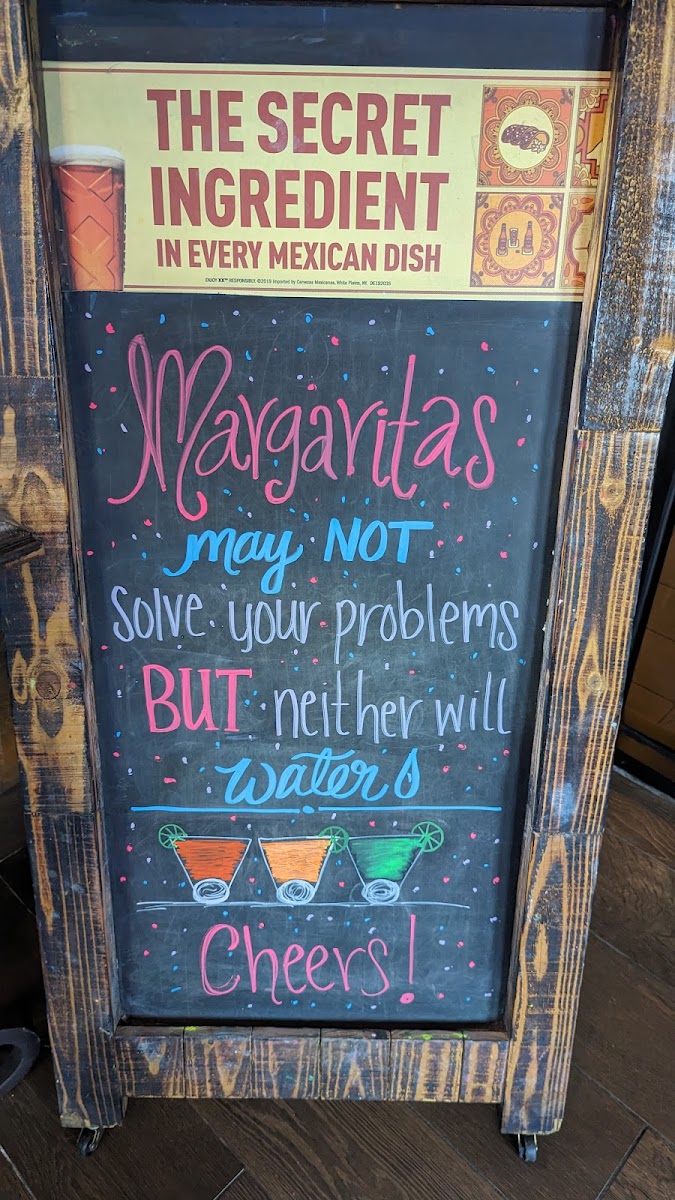 THE SECRET
INGREDIENT
IN EVERY MEXICAN DISH
ENJOY XX™ RESPONSIBLE. ©2019 Imported by Cervezas Mexicanas, White Plains, NY.
Margaritas
may NOT
solve your problems
BUT neither will
waters
Cheers!